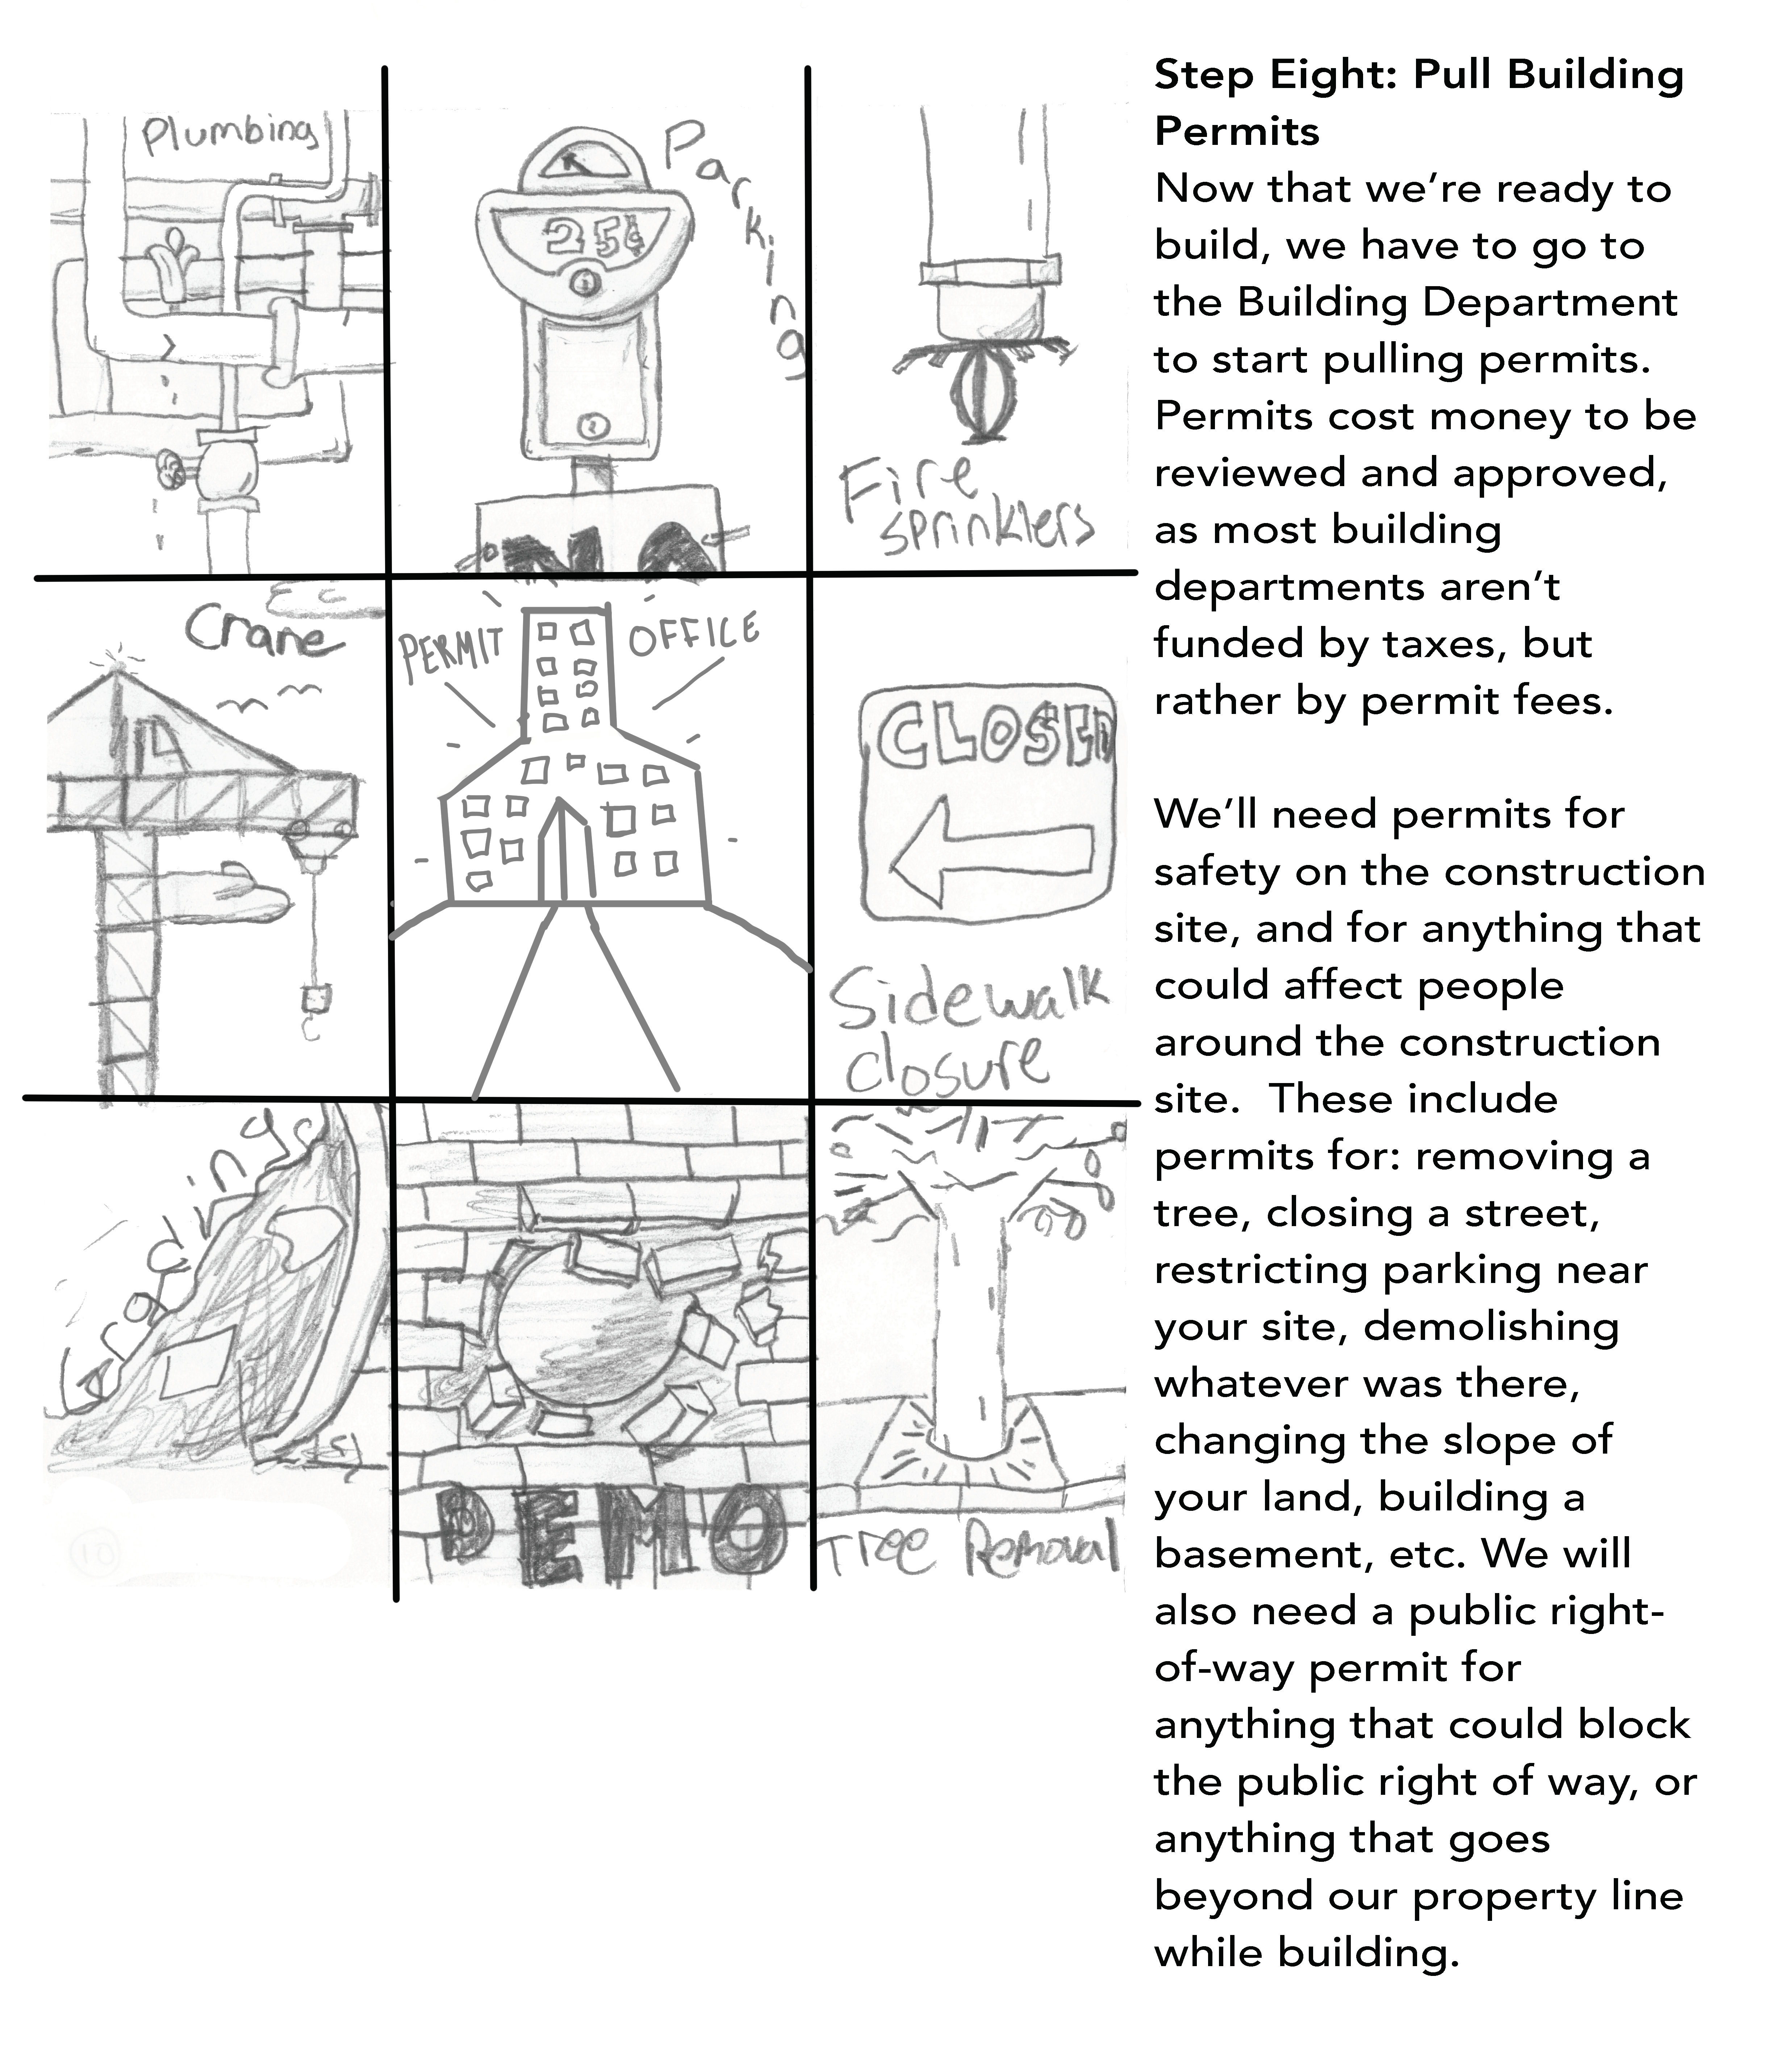 Plumbing
Parking
25¢
Fire
sprinklers
Crane
PERMIT OFFICE
CLOSED
Sidewalk
closure
Grading
DEMO
Tree Removal
Step Eight: Pull Building
Permits
Now that we’re ready to
build, we have to go to
the Building Department
to start pulling permits.
Permits cost money to be
reviewed and approved,
as most building
departments aren’t
funded by taxes, but
rather by permit fees.
We’ll need permits for
safety on the construction
site, and for anything that
could affect people
around the construction
site.  These include
permits for: removing a
tree, closing a street,
restricting parking near
your site, demolishing
whatever was there,
changing the slope of
your land, building a
basement, etc. We will
also need a public right-
of-way permit for
anything that could block
the public right of way, or
anything that goes
beyond our property line
while building.